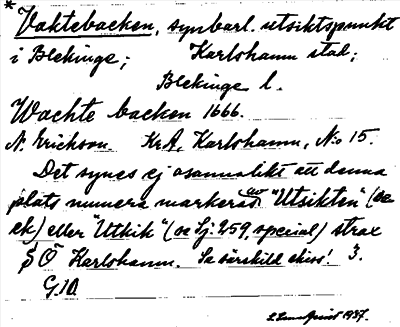 * Vaktebacken, synbarl. utsiktspunkt
i Blekinge; Karlshamn stad;
Blekinge l.
Wachte backen 1666.
N. Erickson KrA, Karlshamn, N:o 15.
Det synes ej osannolikt att denna
plats numera markeras av "Utsikten" (se
ek) eller "Utkik" (se Lj: 259, special) strax
SÖ Karlshamn. Se särskild skiss! 3.
G.10.
1937.